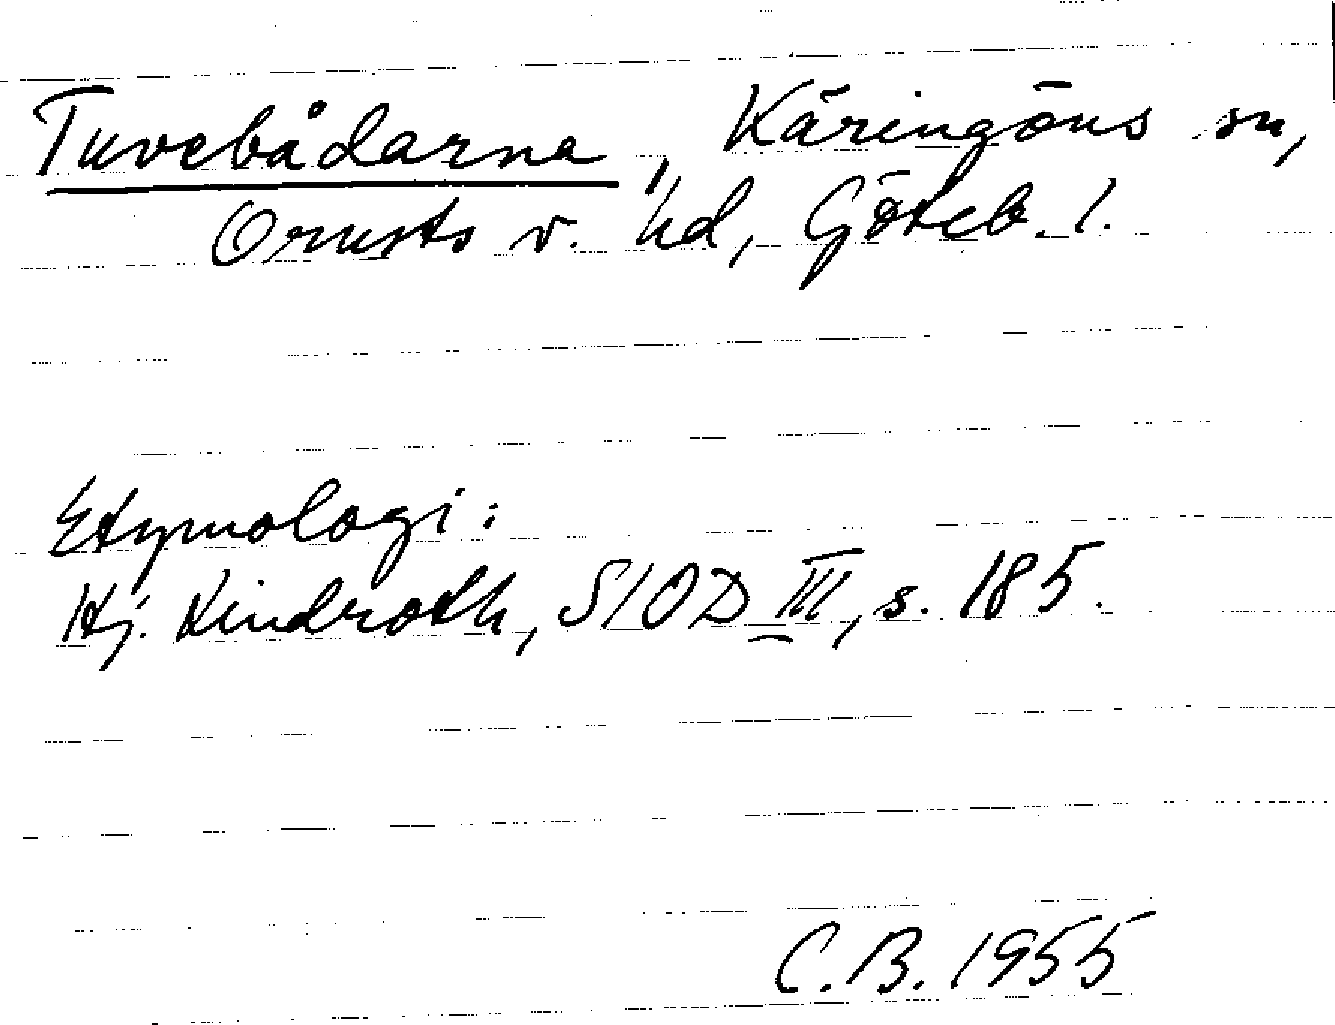 Tuvebådarna, Käringöns sn,
Orusts v. hd, Göteb. l.
Etymologi:
Hj. Lindroth, SIOD III, s. 185.
C.B. 1955